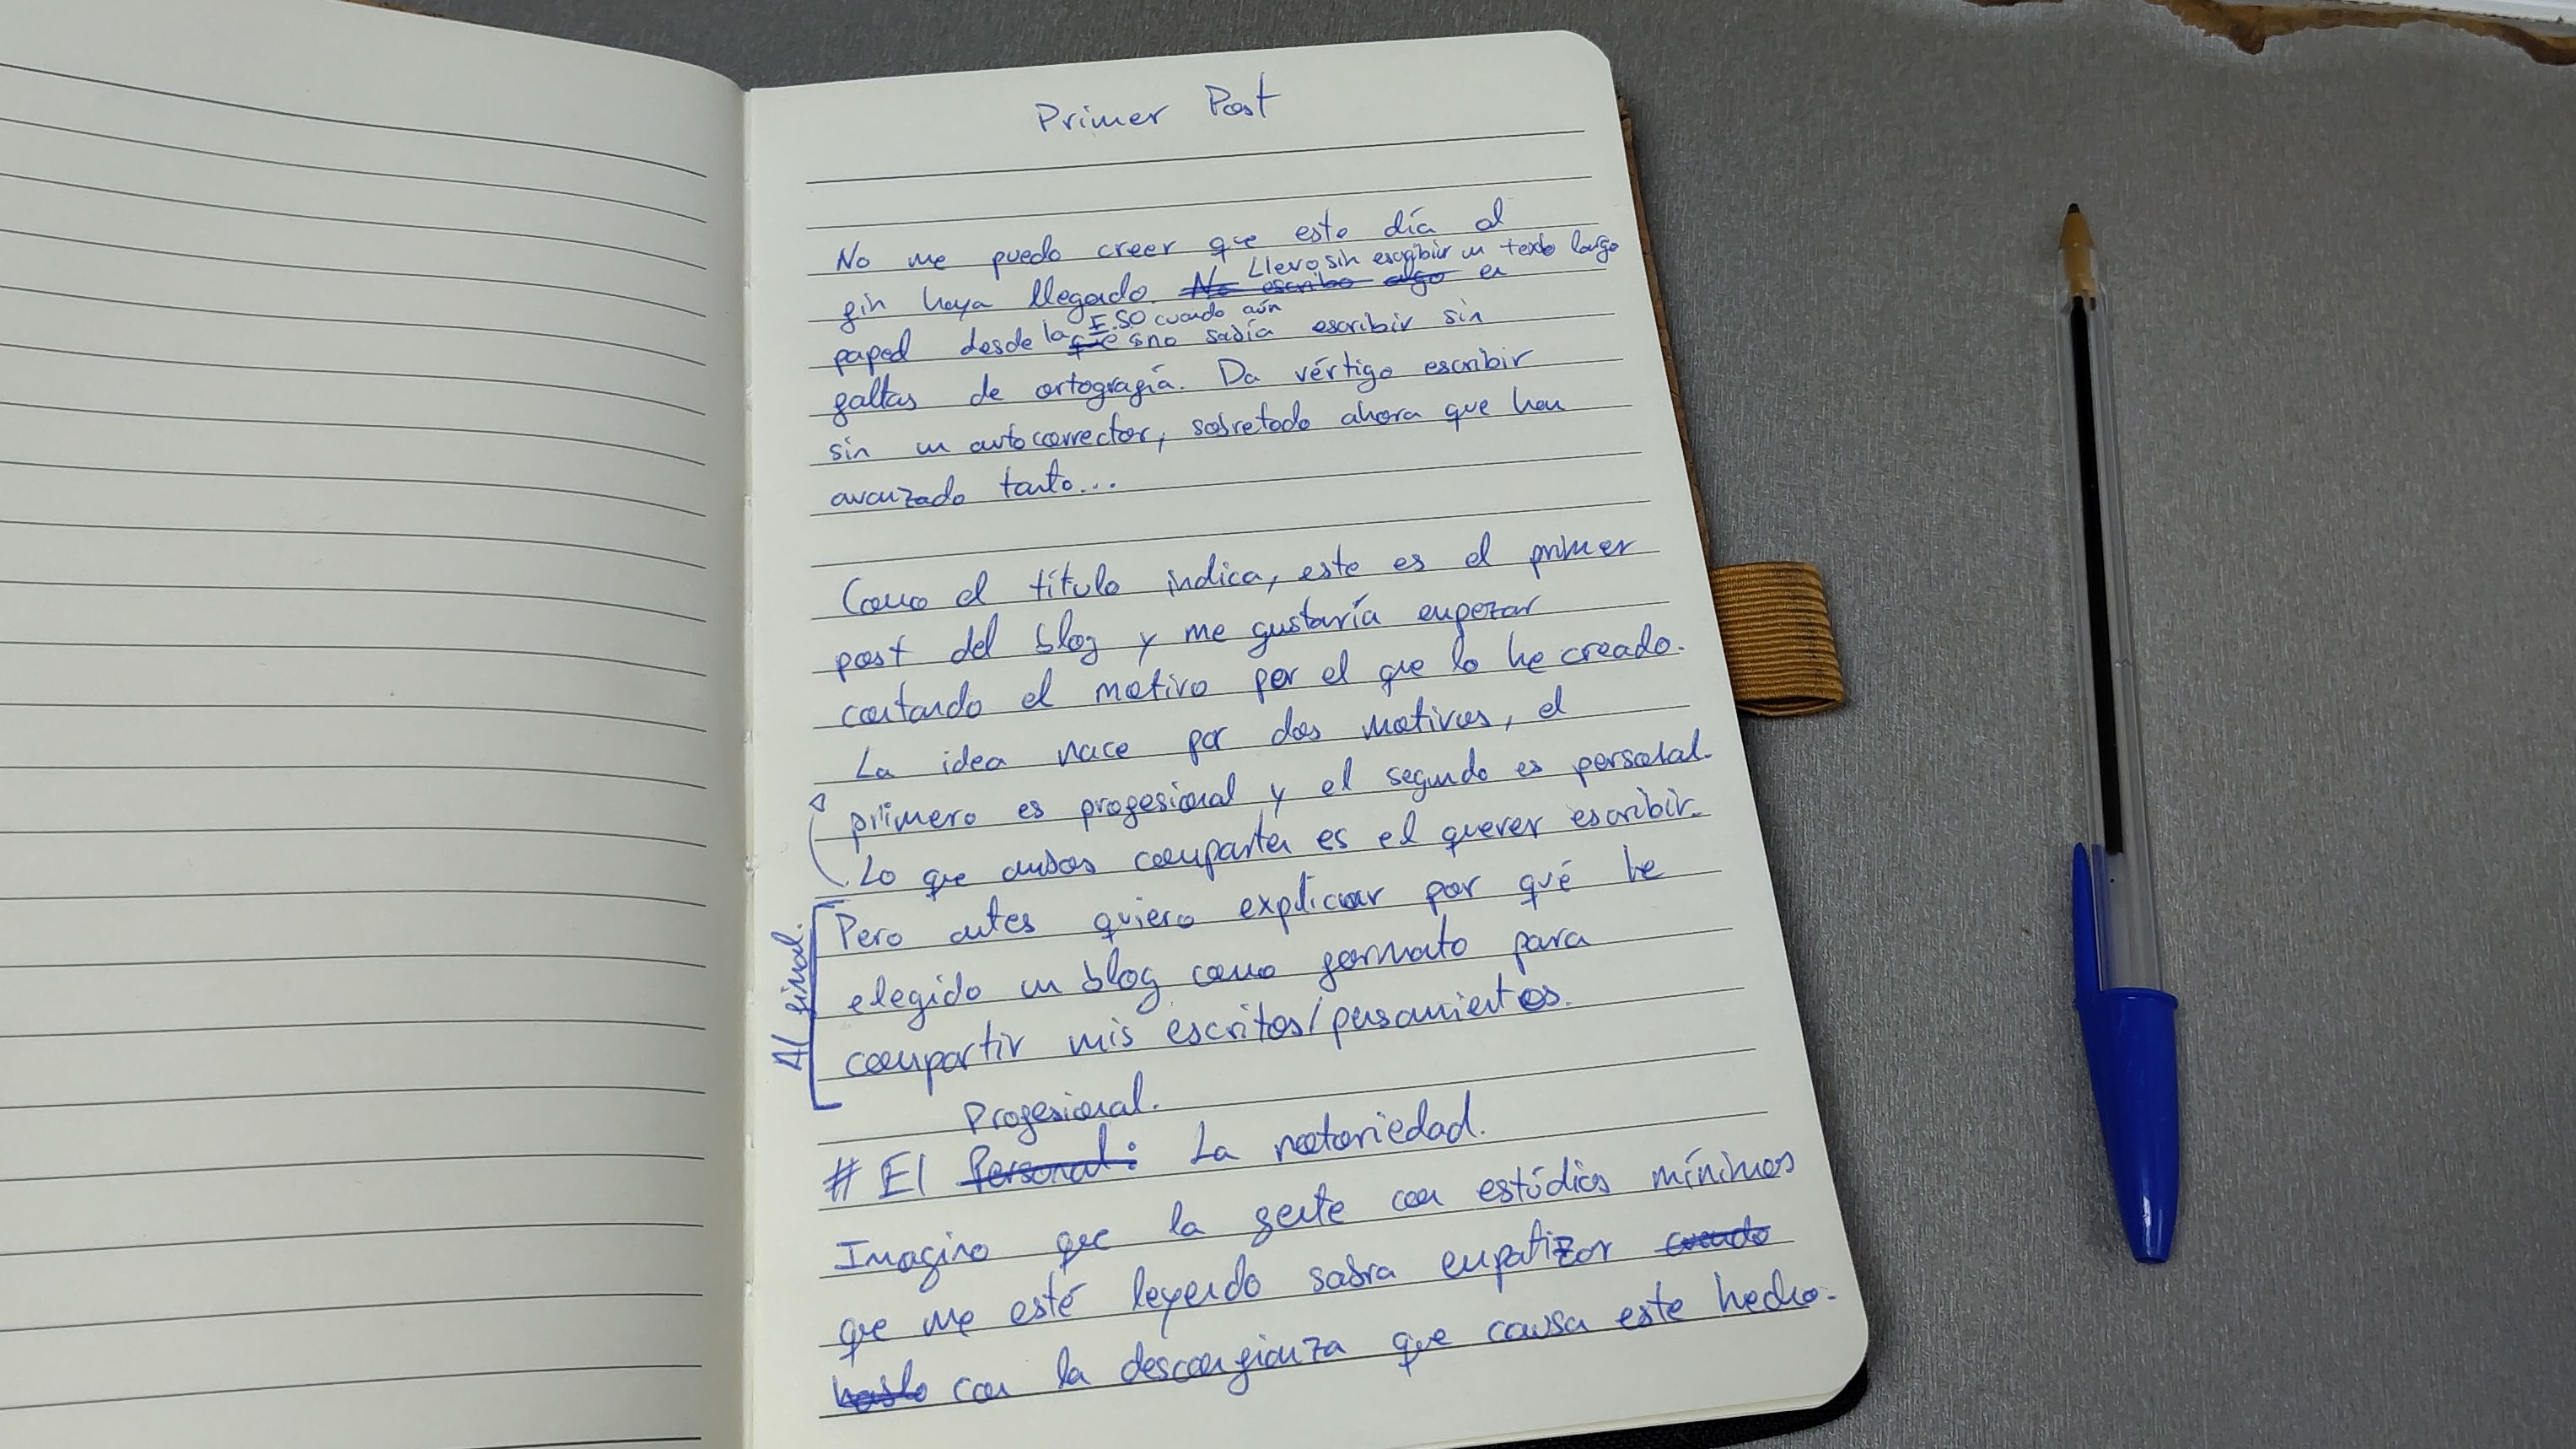 Primer Post
No me puedo creer que este día al
Llevo sin escribir un texto largo
fin haya llegado. No escribo algo en
E.SO cuando aún
papel desde la que no sabía escribir sin
faltas de ortografía. Da vértigo escribir
sin un autocorrector, sobretodo ahora que han
avanzado tanto...
Como el título indica, este es el primer
post del blog y me gustaría empezar
contando el motivo por el que lo he creado.
La idea nace por dos motivos, el
primero es profesional y el segundo es personal.
Lo que ambos comparten es el querer escribir.
Al final.
Pero antes quiero explicar por qué he
elegido un blog como formato para
compartir mis escritos/pensamientos.
Profesional.
# El Personal: La notoriedad.
Imagino que la gente con estúdios mínimos
que me esté leyendo sabra empatizar cuando
hablo con la desconfianza que causa este hecho.